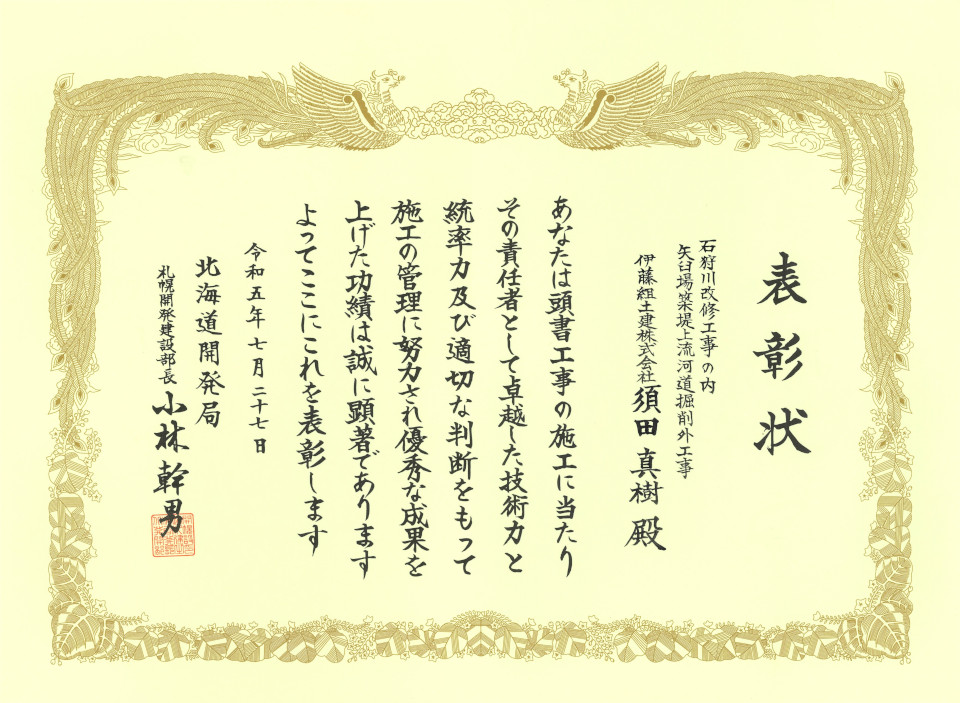 表彰状
石狩川改修工事の内
矢臼場築堤上流河道掘削外工事
伊藤組土建株式会社 須田真樹 殿
あなたは頭書工事の施工に当たり
その責任者として卓越した技術力と
統率力及び適切な判断をもって
施工の管理に努力され優秀な成果を
上げた功績は誠に顕著であります
よってここにこれを表彰します
令和五年七月二十七日
北海道開発局
札幌開発建設部長 小林幹男